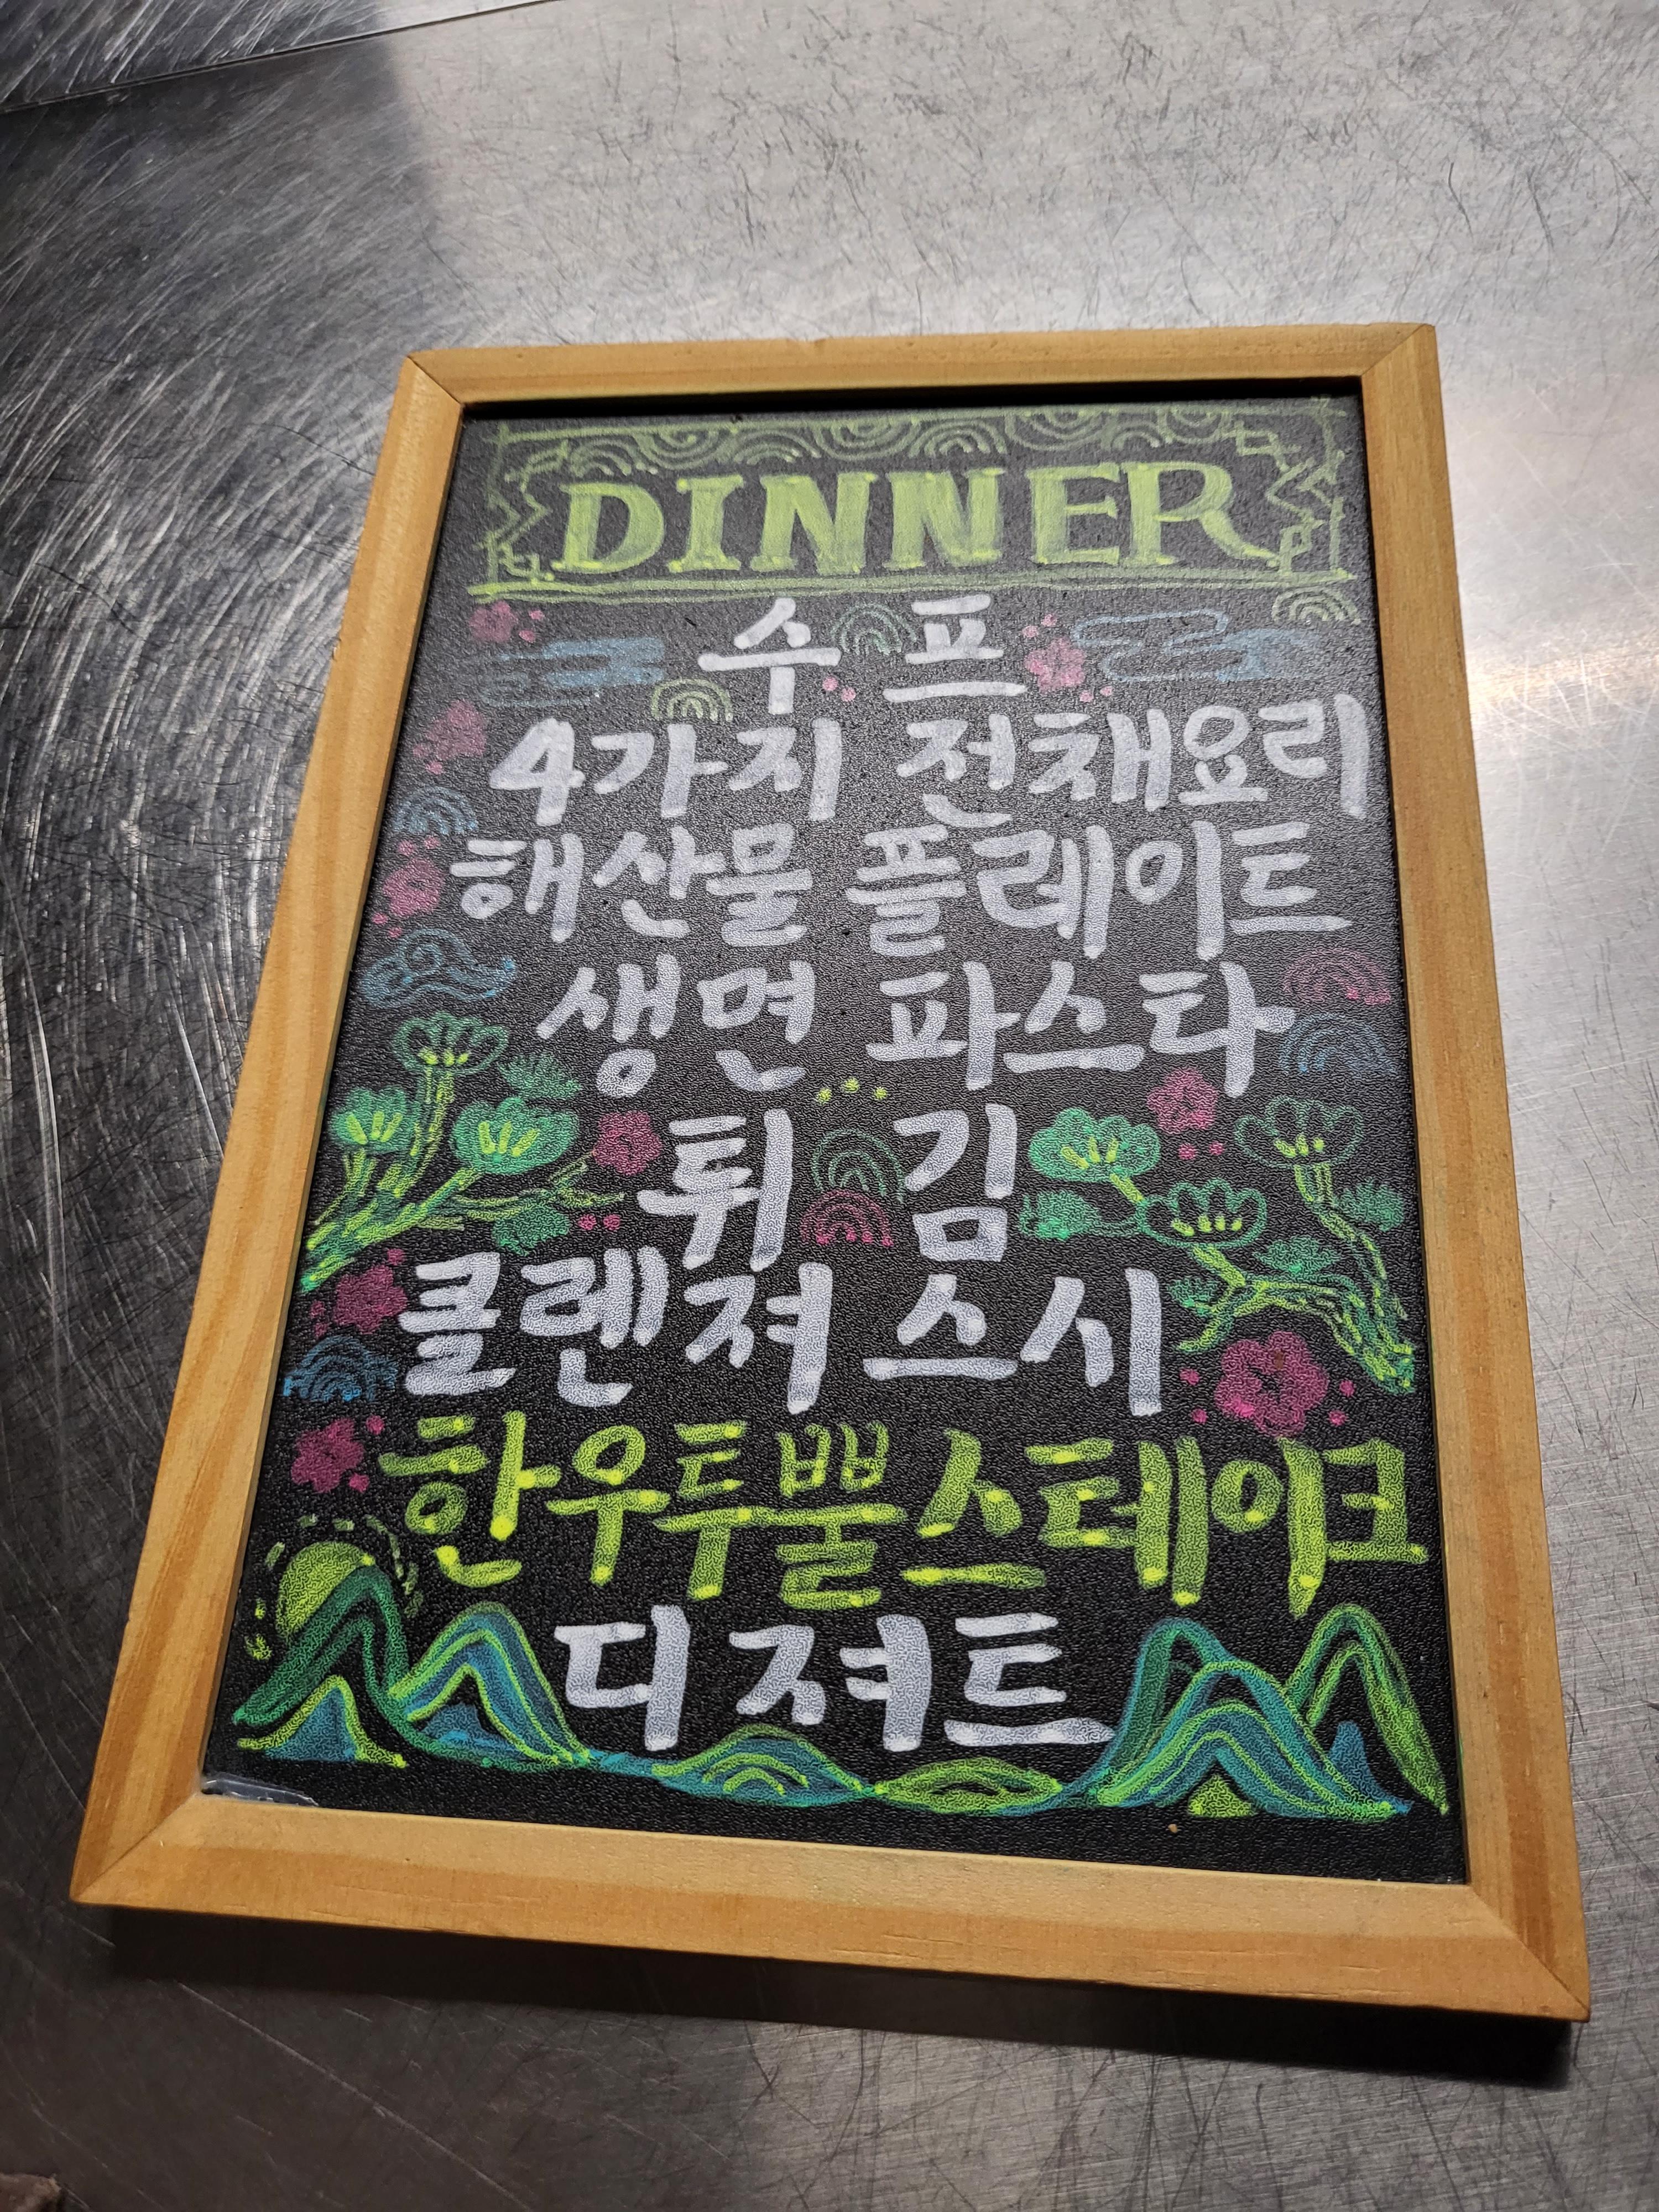 DINNER
수프
4가지 전채요리
해산물 플레이트
생면 파스타
튀김
클렌져 스시
한우투뿔스테이크
디져트